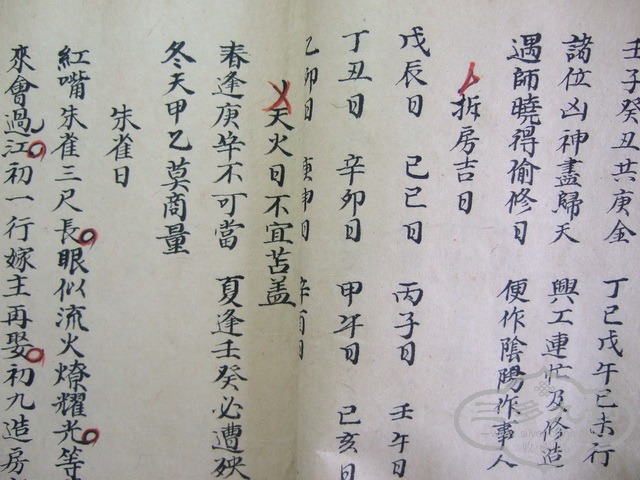 壬子癸丑共庚金 丁巳戊午己未行
諸位凶神盡歸天 興工連忙及修造
遇師曉得偷修日 便作陰陽作事人
拆房吉日
戊辰日 己巳日 丙子日 壬午日
丁丑日 辛卯日 甲午日 己亥日
乙卯日 庚申日 辛酉日
天火日不宜苫盖
春逢庚辛不可當 夏逢壬癸必遭殃
冬天甲乙莫商量
朱雀日
紅嘴朱雀三尺長眼似流火燎耀光等
來會過江初一行嫁主再娶初九造房